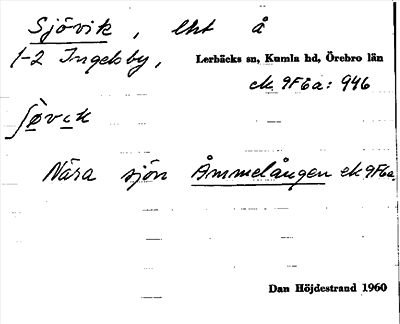 Sjövik, lht å
1-2 Ingelsby, Lerbäcks sn, Kumla hd, Örebro län
ek 9F6a: 946
ʃø̱vi̱k
Nära sjön Åmmelången ek 9F6a.
Dan Höjdestrand 1960